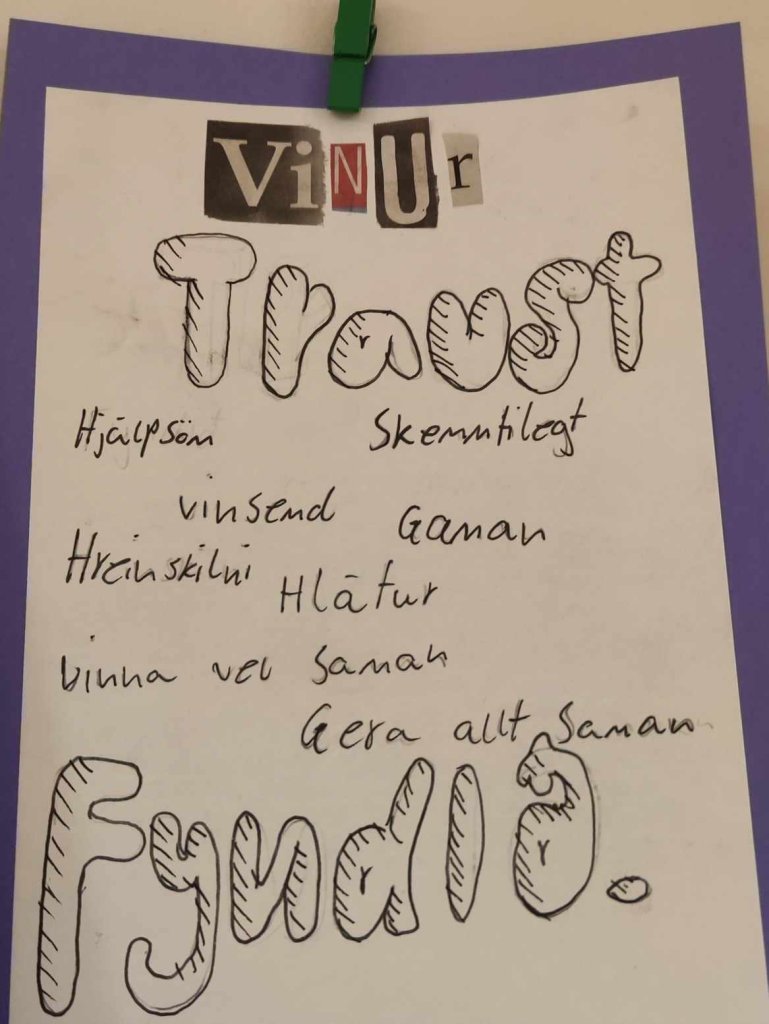 ViNUr
Traust
Hjálpsöm Skemmtilegt
vinsemd Gaman
Hreinskilni Hlátur
vinna vel saman
Gera allt saman
Fyndið.